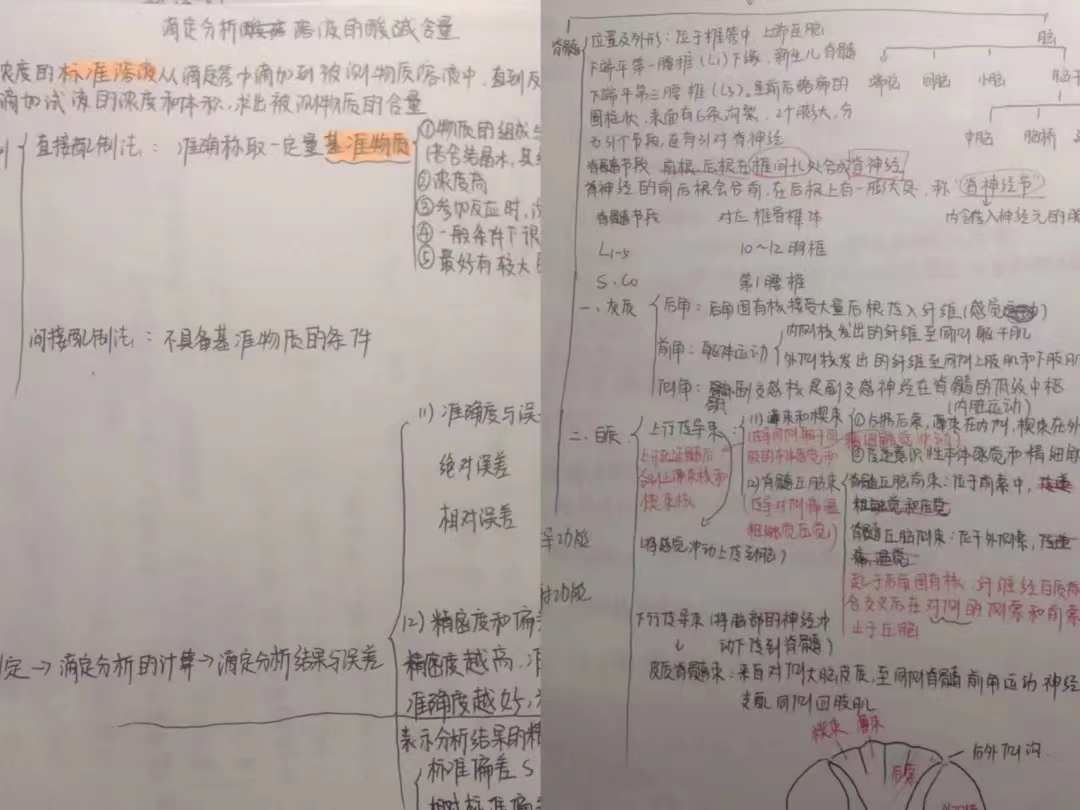 滴定分析 溶液的酸碱含量
浓度的标准溶液从滴定管中滴加到被测物质溶液中，直到反
滴加试液的浓度和体积，求出被测物质的含量
直接配制法：准确称取一定量基准物质
①物质的组成与
(若含结晶水，其
②浓度高
③参加反应时，
④一般条件下很
⑤最好有较大的
间接配制法：不具备基准物质的条件
(1)准确度与误
绝对误差
相对误差
(2)精密度和偏差
定→滴定分析的计算→滴定分析结果与误差
精密度越高，准
准确度越好，
表示分析结果的精
标准偏差S
相对标准偏
导功能
射功能
脊髓
位置及外形：位于椎管中，上端连脑
下端平第一腰椎(L1)下缘，新生儿脊髓
下端平第三腰椎(L3)。呈前后略扁的
圆柱状，表面有6条沟裂，2个膨大，分
为31个节段，连有31对脊神经
脑
端脑 间脑 小脑 脑干
中脑 脑桥 延
脊髓节段 前根、后根在椎间孔处合成脊神经
脊神经的前后根会合前，在后根上有一膨大处，称"脊神经节"
脊髓节段 对应椎骨椎体 内含传入神经元的胞
L1-5 10～12胸椎
S.Co 第1腰椎
一、灰质
后角：后角固有核接受大量后根传入纤维(感觉)
前角：躯体运动
内侧核发出的纤维至同侧躯干肌
外侧核发出的纤维至同侧上肢肌和下肢肌
侧角：骶副交感核是副交感神经在脊髓的低级中枢
(内脏运动)
二、白质
上行传导束：
(1)薄束和楔束
①占据后索，薄束在内侧，楔束在外
②传递意识性本体感觉和精细触
(传导同侧躯干四
肢的本体感觉和
精细触觉冲动)
上行至延髓后
分别止薄束核和
楔束核
(2)脊髓丘脑束
(传导对侧痛温
粗触觉压觉)
脊髓丘脑前束：位于前索中，传递
粗触觉和压觉
脊髓丘脑侧束：位于外侧索，传递
痛、温觉
起于后角固有核，纤维经白质前
合交叉后在对侧的侧索和前索
止于丘脑
(将感觉冲动上传到脑)
下行传导束(将脑部的神经冲
动下传到脊髓)
皮质脊髓束：来自对侧大脑皮质，至同侧脊髓前角运动神经
支配同侧四肢肌
楔束 薄束
后索
后外侧沟